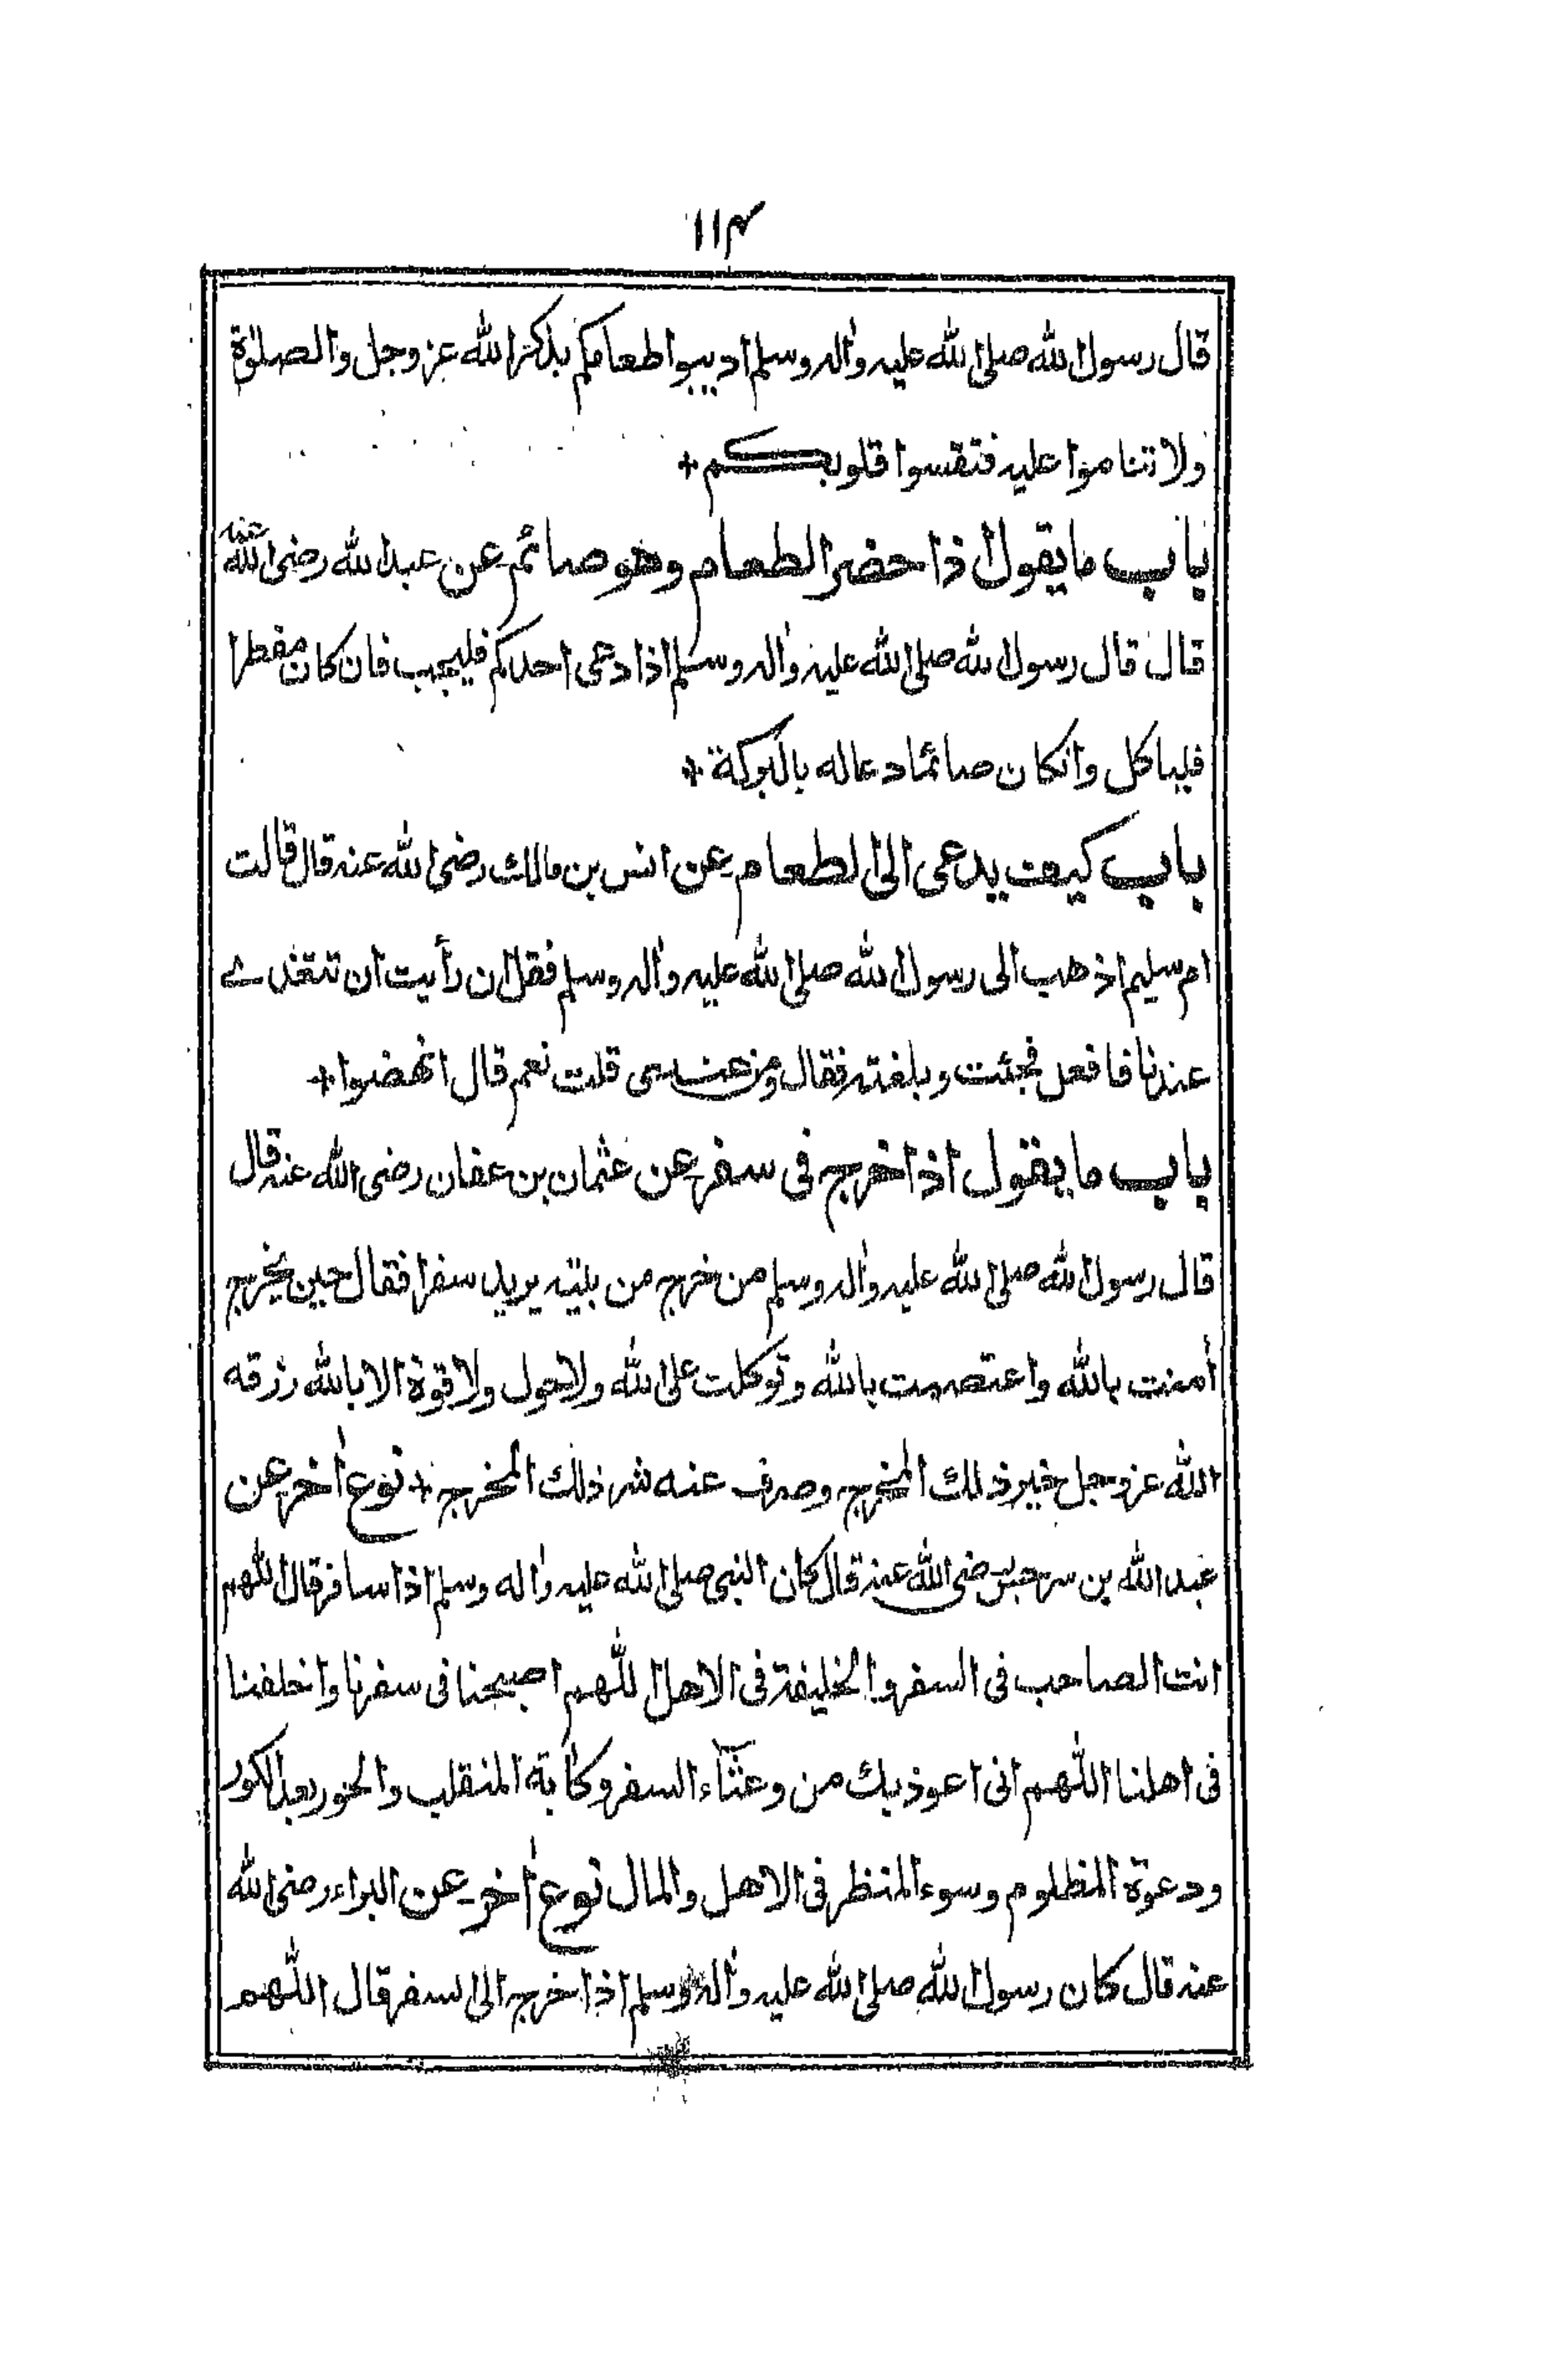 ١١٤
قال رسول الله صلى الله عليه واٰله وسلم اديبوا طعامكم بذكر الله عز وجل والصلوٰة
ولا تناموا عليه فتقسوا قلوبكم +
باب ما يقول اذا حضر الطعام وهو صائم عن عبد الله رضى الله عنه
قال قال رسول الله صلى الله عليه واٰله وسلم اذا دعى احدكم فليجب فان كان مفطرا
فلياكل وانكان صائما دعا له بالبركة +
باب كيف يدعى الى الطعام عن انس بن مالك رضى الله عنه قال قالت
ام سليم اذهب الى رسول الله صلى الله عليه واٰله وسلم فقل ان رأيت ان تتغدے
عندنا فافعل فجئت وبلغته فقال ومن عندى قلت نعم قال انهضوا +
باب ما يقول اذا خرج فى سفر عن عثمان بن عفان رضى الله عنه قال
قال رسول الله صلى الله عليه واٰله وسلم من خرج من بيته يريد سفرا فقال حين يخرج
اٰمنت بالله واعتصمت بالله وتوكلت على الله ولا حول ولا قوة الا بالله رزقه
الله عز وجل خير ذلك المخرج وصرف عنه شر ذلك المخرج + نوع اٰخر عن
عبد الله بن سرجس رضى الله عنه قال كان النبى صلى الله عليه واٰله وسلم اذا سافر قال اللّٰهم
انت الصاحب فى السفر والخليفة فى الاهل اللّٰهم اصحبنا فى سفرنا واخلفنا
فى اهلنا اللّٰهم انى اعوذ بك من وعثآء السفر وكاٰبة المنقلب والحور بعد الكور
ودعوة المظلوم وسوء المنظر فى الاهل والمال نوع اٰخر عن البراء رضى الله
عنه قال كان رسول الله صلى الله عليه واٰله وسلم اذا خرج الى سفر قال اللّٰهم